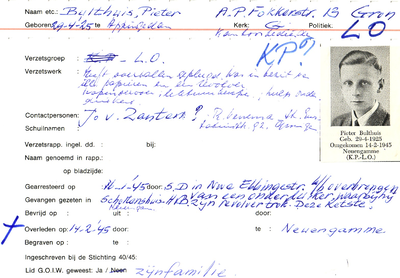 Naam etc: Bulthuis, Pieter A.P. Fokkerstr. 13 Gron
Geboren 29-4-'25 te Appingedam Kerk: G Politiek.
Kantoorbediende LO
K.P.?
Verzetsgroep : L.O.
Verzetswerk : Heeft overvallen gepleegd, was in bezit van
alle papieren en een
Contactpersonen: J. v. Zanten? R. Venema
Schuilnamen :
Pieter Bulthuis
Geb. 29-4-1925
Omgekomen 14-2-1945
Neuengamme
(K.P.-L.O.)
Verzetsrapp. ingel. dd. : bij:
Naam genoemd in rapp. :
op bladzijde:
Gearresteerd op 10-1-'45 door: S.D in Nwe Ebbingestr. bij overbrengen
Gevangen gezeten in: Scholtenshuis, HvB, van een onderduiker, waarbij hij
zijn revolver trok. Deze ketste.
Bevrijd op : uit : door :
Overleden op: 14-2-'45 door: te: Neuengamme
Begraven op : te :
Ingeschreven bij de Stichting 40/45:
Lid G.O.I.W. geweest: Ja / Neen zijn familie